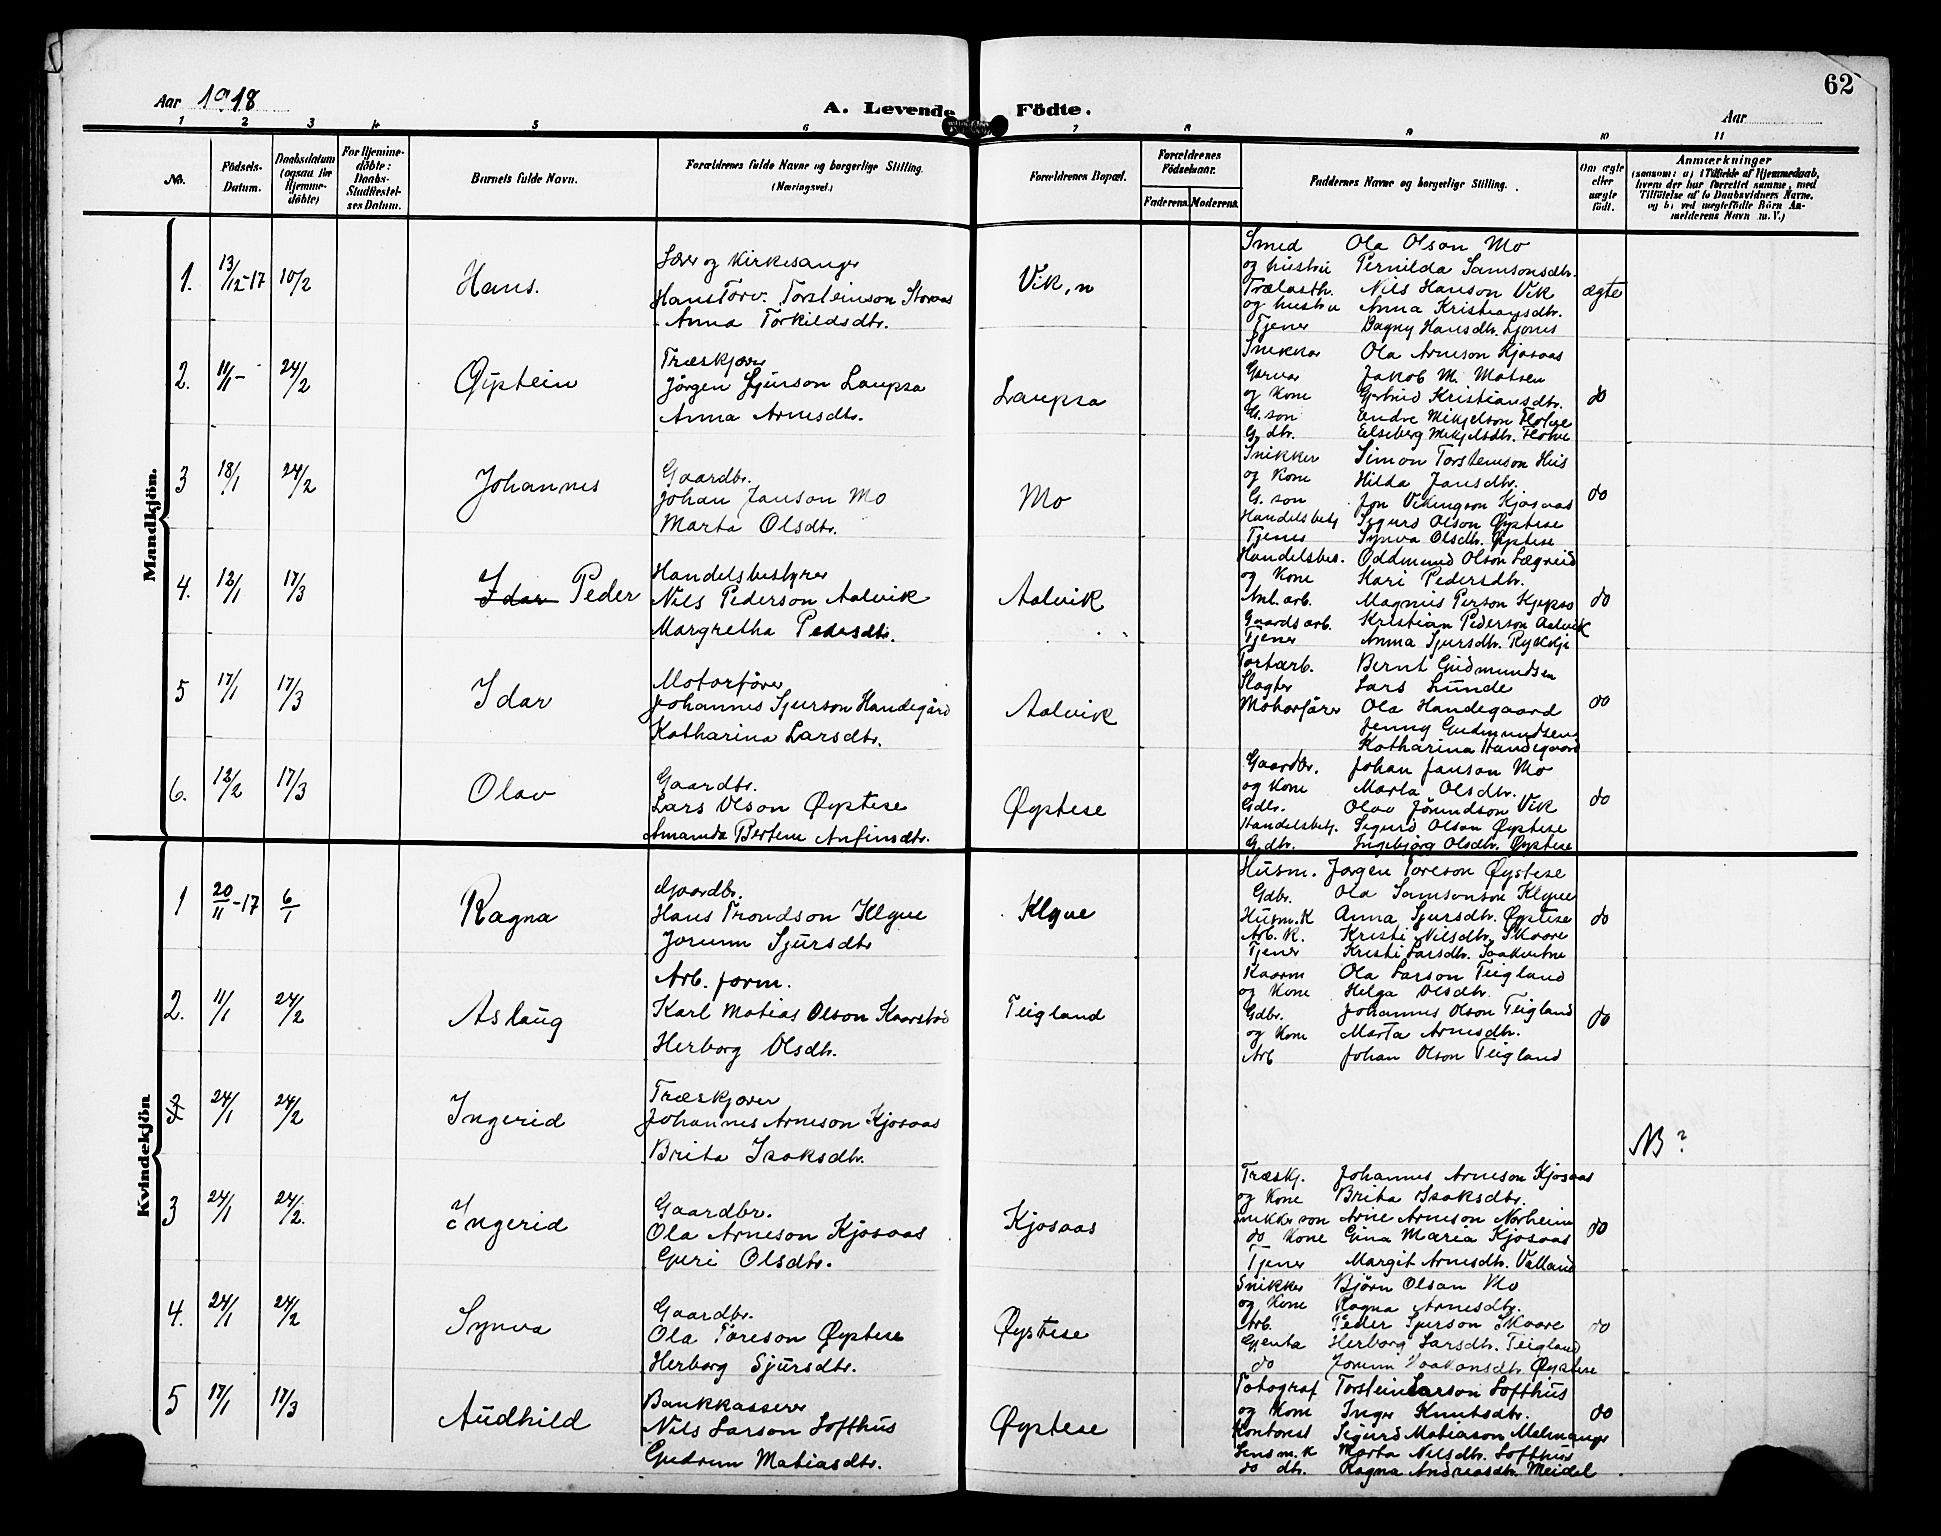 62
Aar 1918
A. Levende Födte.
Aar
1 2 3 4 5 6 7 8 9 10 11
No.
Födsels-Datum.
Daabsdatum (ogsaa for Hjemme-döbte)
For Hjemme-döbte: Daabs-Stadfestel-ses Datum.
Barnets fulde Navn.
Forældrenes fulde Navne og borgerlige Stilling.
(Næringsvei.)
Forældrenes Bopæl.
Forældrenes Födselsaar.
Faderens. Moderens.
Faddernes Navne og borgerlige Stilling.
Om ægte eller uægte födt.
Anmærkninger
(saasom: a) i Tilfælde af Hjemmedaab, hvem der har forrettet samme, med Tilföielse af to Daabsvidners Navne, og b) ved uægtefödte Börn An-melderens Navn m. V.)
Mandkjön.
1. 13/12-17 10/2 Hans.
Lærer og Kirkesanger
Hans Torv. Torsteinson Storaas
Anna Torkildsdtr.
Vik, n
Smed Ola Olson Mo
og hustru Pernilda Samsonsdtr.
Trælasth. Nils Hanson Vik
og hustru Anna Kristiansdtr.
Tjener Dagny Hansdtr. Ljones
ægte
2. 11/1 - 24/2 Øystein
Træskjærer
Jörgen Sjurson Laupsa
Anna Arnesdtr.
Laupsa
Snekkar Ola Arneson Kjosaas
Garvar Jakob M. Motsen
og Kone Gertrud Kristiansdtr.
G. son Endre Mikjelson Flotve
G. dtr. Elseberg Mikjelsdtr. Flotve
do
3 18/1 24/2 Johannes
Gaardbr.
Johan Janson Mo
Marta Olsdtr.
Mo
Snikker Simon Torsteinson Hus
og Kone Hilda Jansdtr.
G. son Jon Vikingson Kjosaas
Handelsbetj. Sigurd Olson Øystese
Tjener Synva Olsdtr. Øystese
do
4. 12/1 17/3 Idar Peder
Handelsbestyrer
Nils Pederson Aalvik
Margretha Pedersdtr.
Aalvik
Handelsbes. Oddmund Olson Lægreid
og Kone Kari Pedersdtr.
Anl. arb. Magnus Person Kjepso
Gaardsarb. Kristian Pederson Aalvik
Tjener Anna Sjursdtr. Rykkje
do
5 17/1 17/3 Idar
Motorförer
Johannes Sjurson Handegård
Katharina Larsdtr.
Aalvik
Bernt Gudmundsen
Slagter Lars Lunde
Motorförer Ola Handegaard
Jenny Gudmundsen
Katharina Handegaard
do
6. 12/2 17/3 Olav
Gaardbr.
Lars Olson Øystese
Amanda Bertine Anfinsdtr.
Øystese
Gaardbr. Johan Janson Mo
og Kone Marta Olsdtr.
Gdbr. Olav Jörundson Vik
Handelsbetj. Sigurd Olson Øystese
G. dtr. Ingebjörg Olsdtr. Øystese
do
Kvindekjön
1 20/11-17 6/1 Ragna
Gaardbr.
Hans Trondson Klyve
Jorunn Sjursdtr
Klyve
Husm. Jörgen Toreson Øystese
Gdbr. Ola Samsonson Klyve
Husm. K Anna Sjursdtr. Øystese
Arb. K. Kristi Nilsdtr. Skaare
Tjener Kristi Larsdtr. Saakvitne
do
2. 11/1 24/2 Aslaug
Arb. form.
Karl Matias Olson Kaarstad
Herborg Olsdtr.
Teigland
Kaarm Ola Larson Teigland
og Kone Helga Olsdtr.
Gdbr. Johannes Olson Teigland
og Kone Marta Arnesdtr.
Arb Johan Olson Teigland
do
3 24/1 24/2 Ingerid
Træskjærer
Johannes Arneson Kjosaas
Brita Isaksdtr.
NB ?
3 24/1 24/2. Ingerid
Gaardbr.
Ola Arneson Kjosaas
Guri Olsdtr.
Kjosaas
Træskj. Johannes Arneson Kjosaas
og Kone Brita Isaksdtr.
Snekker son Arne Arneson Norheim
do Kone Gina Maria Kjosaas
Tjener Margit Arnesdtr. Valland
do
4. 24/1 24/2 Synva
Gaardbr.
Ola Toreson Øystese
Herborg Sjursdtr.
Øystese
Snikker Björn Olson Mo
og Kone Ragna Arnesdtr.
Arb. Peder Sjurson Skaare
Gjenta Herborg Larsdtr. Teigland
do Jorunn Haakonsdtr. Øystese
do
5 17/1 17/3 Audhild
Bankkasserer
Nils Larson Lofthus
Gudrun Matiasdtr.
Øystese
Fotograf Torstein Larson Lofthus
og Kone Inger Knutsdtr.
Kontorist Sigurd Matiason Malmanger
Lensm. K Marta Nilsdtr. Lofthus
do dtr. Ragna Andreasdtr. Meidel
do